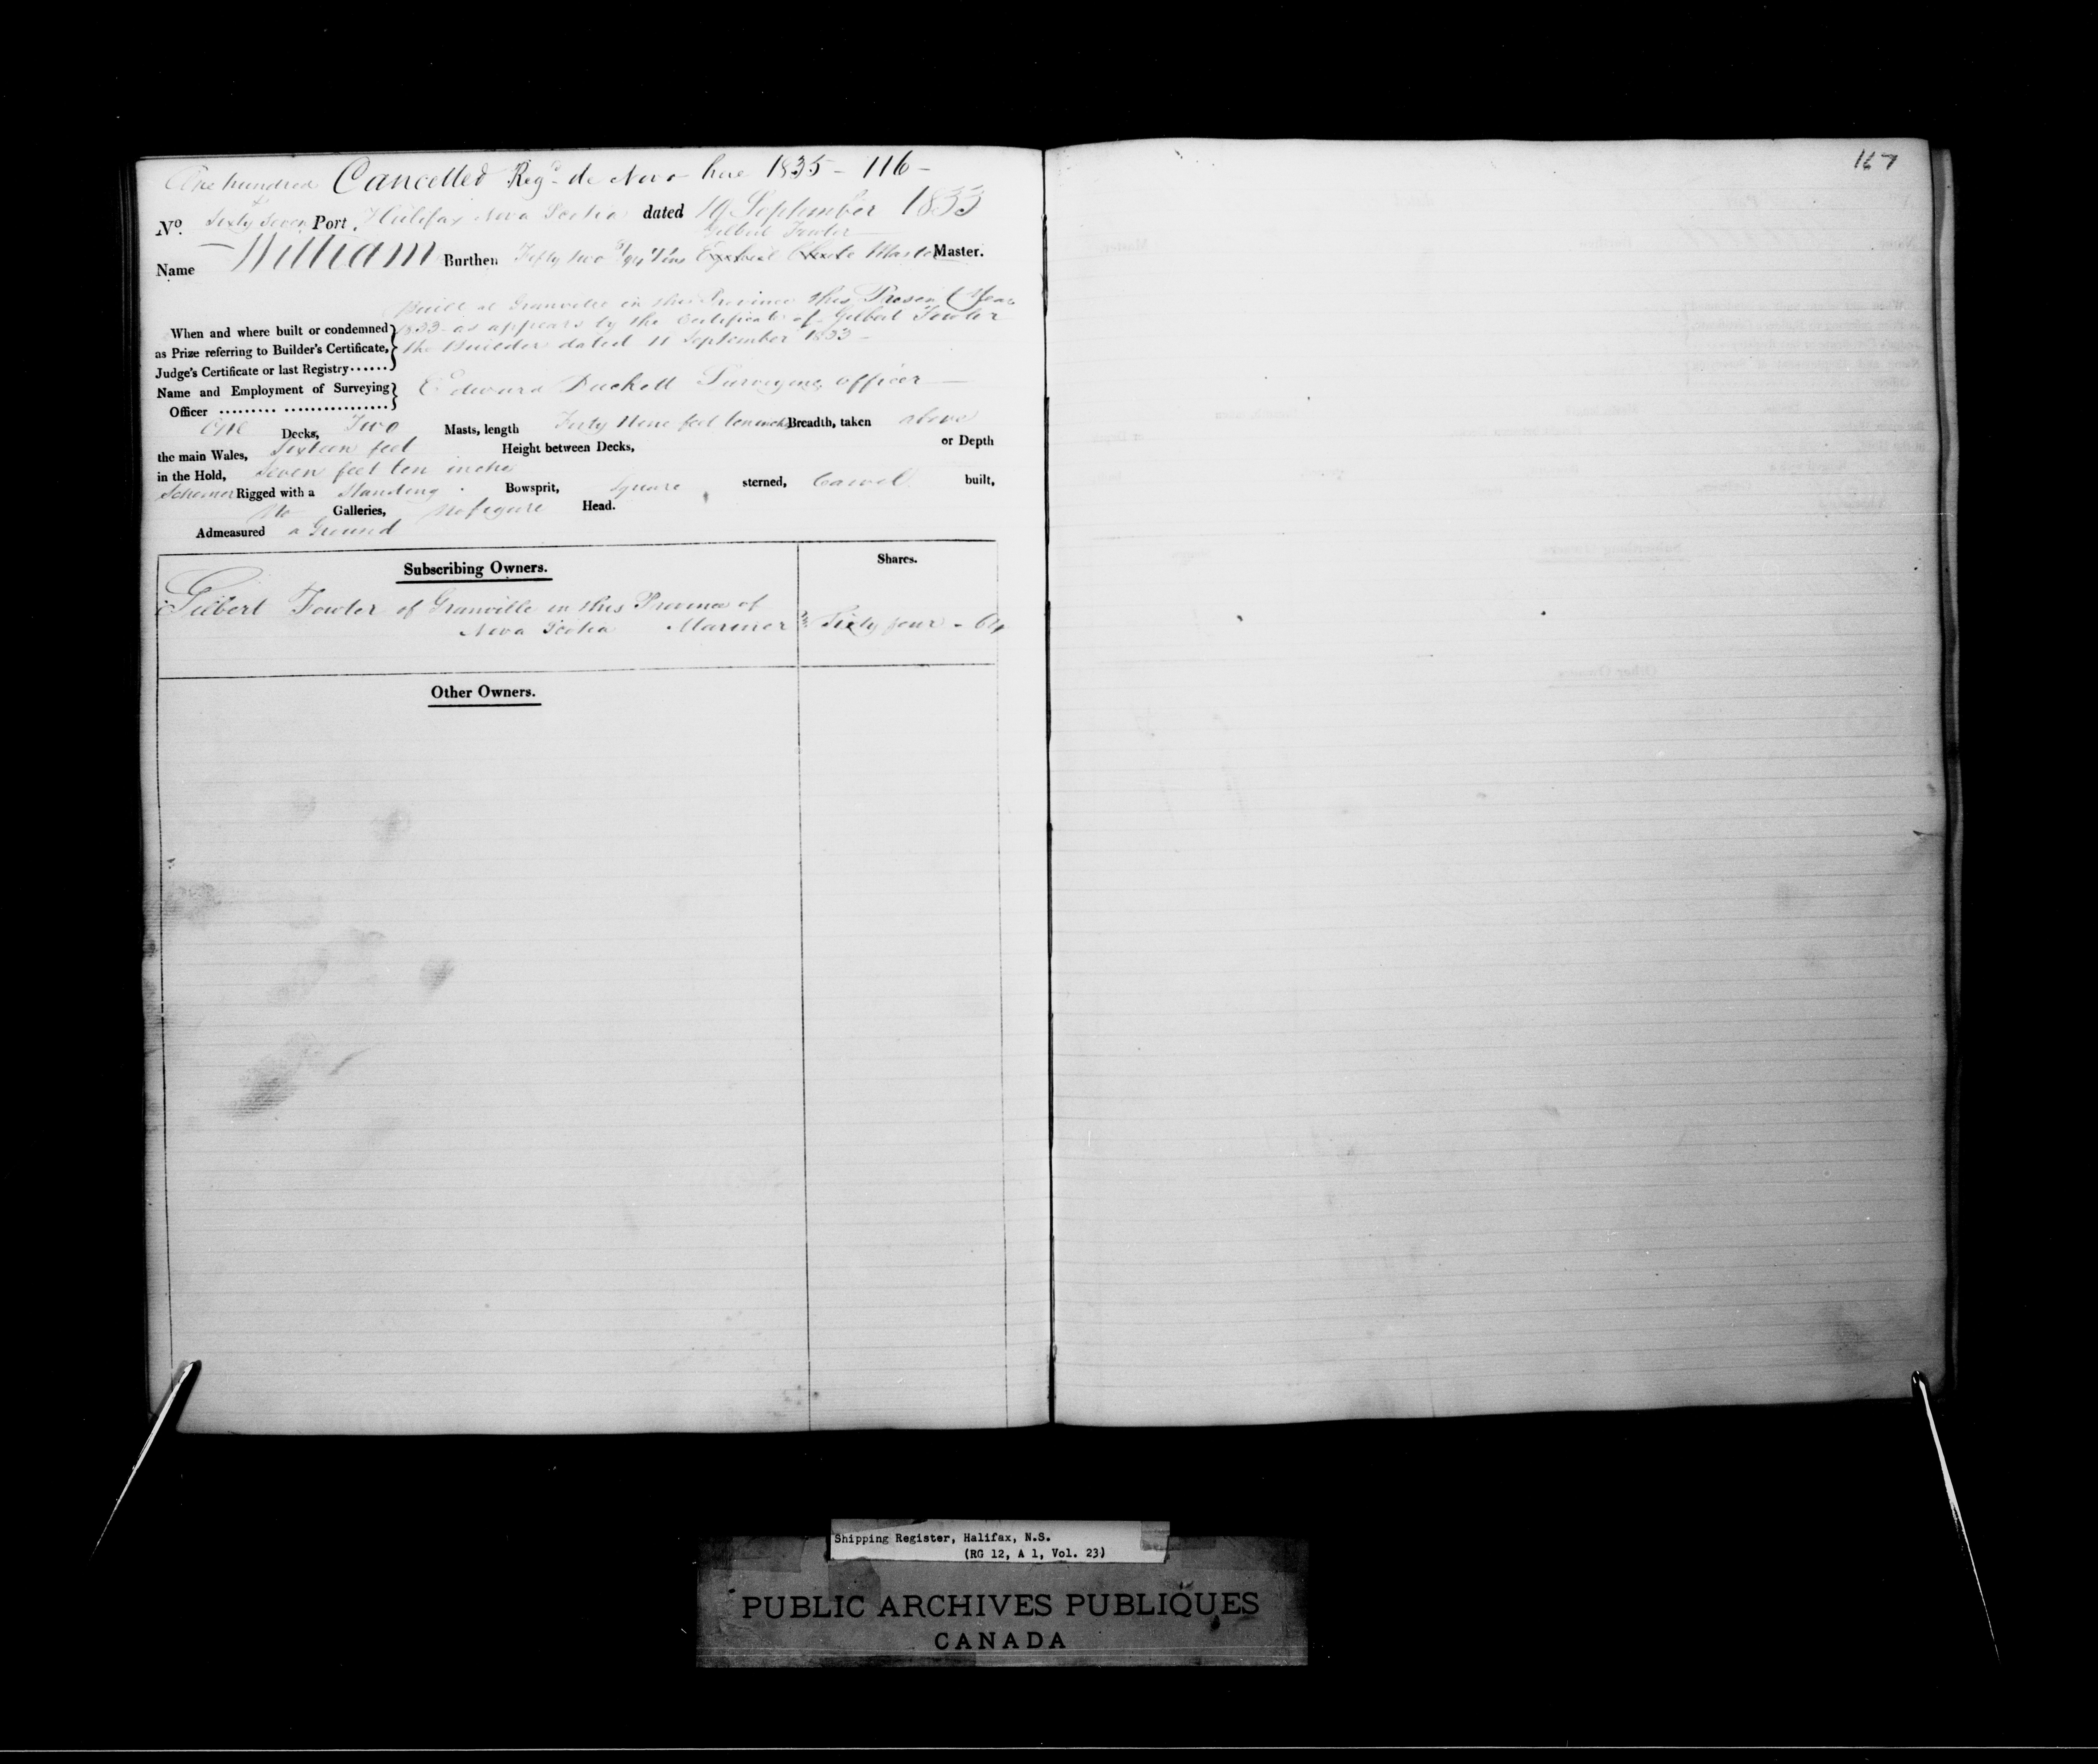 One hundred Cancelled Regd de Novo here 1835 - 116 -
&
No. Sixty Seven Port, Halifax Nova Scotia dated 19 September 1833
Gilbert Fowler
Name William Burthen Fifty two /94 Tons Master.
Built at Granville in this Province this Present Year
When and where built or condemned 1833 as appears by the Certificate of Gilbert Fowler
as Prize referring to Builder's Certificate, the Builder dated 11 September 1833 -
Judge's Certificate or last Registry......
Name and Employment of Surveying Edward Duckett Surveying officer
Officer
One Decks, Two Masts, length Forty Nine feet ten inches Breadth, taken above
the main Wales, Sixteen feet Height between Decks, or Depth
in the Hold, Seven feet ten inches
Schooner Rigged with a Standing Bowsprit, Square sterned, Carvel built,
No Galleries, No figure Head.
Admeasured a Ground
Subscribing Owners. Shares.
Gilbert Fowler of Granville in this Province of
Nova Scotia Mariner Sixty four - 64
Other Owners.
167
Shipping Register, Halifax, N.S.
(RG 12, A 1, Vol. 23)
PUBLIC ARCHIVES PUBLIQUES
CANADA